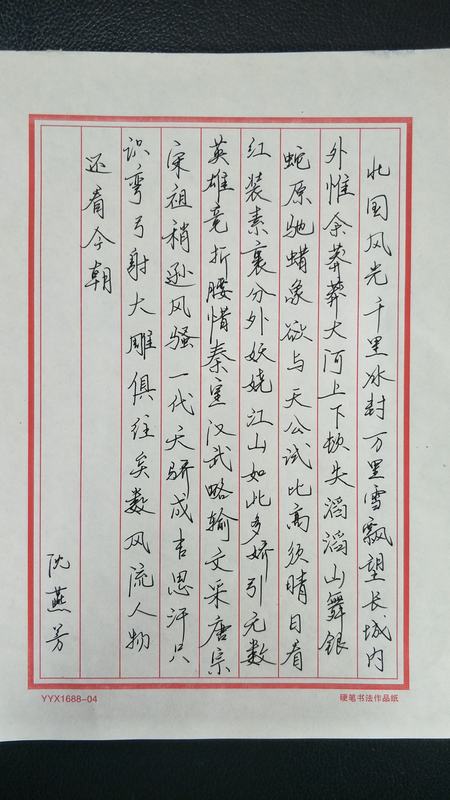 北国风光千里冰封万里雪飘望长城内
外惟余莽莽大河上下顿失滔滔山舞银
蛇原驰蜡象欲与天公试比高须晴日看
红装素裹分外妖娆江山如此多娇引无数
英雄竞折腰惜秦皇汉武略输文采唐宗
宋祖稍逊风骚一代天骄成吉思汗只
识弯弓射大雕俱往矣数风流人物
还看今朝
沈燕芳
YYX1688-04
硬笔书法作品纸